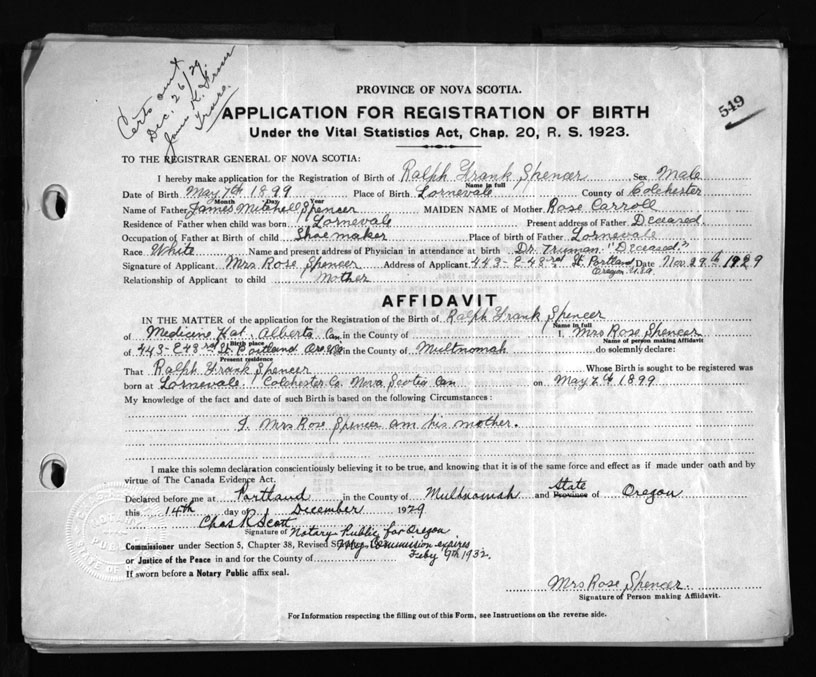 Certs out
Dec. 26/29
James K.
Truro.
549
PROVINCE OF NOVA SCOTIA.
APPLICATION FOR REGISTRATION OF BIRTH
Under the Vital Statistics Act, Chap. 20, R. S. 1923.
TO THE REGISTRAR GENERAL OF NOVA SCOTIA:
I hereby make application for the Registration of Birth of Ralph Frank Spencer Sex Male
Name in full
Date of Birth May 7th 1899 Place of Birth Lornevale County of Colchester
Month Day Year
Name of Father James Mitchell Spencer MAIDEN NAME of Mother Rose Carroll
Residence of Father when child was born Lornevale Present address of Father Deceased.
Occupation of Father at Birth of child Shoemaker Place of birth of Father Lornevale
Race White Name and present address of Physician in attendance at birth Dr Truman "Deceased."
Signature of Applicant Mrs Rose Spencer Address of Applicant 443-E 43rd St. Portland Date Nov 29th 1929
Oregon USA.
Relationship of Applicant to child Mother
AFFIDAVIT
IN THE MATTER of the application for the Registration of the Birth of Ralph Frank Spencer
Name in full
of Medicine Hat. Alberta Can in the County of I, Mrs Rose Spencer
Birth place Name of person making Affidavit
of 443-E 43rd St Portland Ore in the County of Multnomah do solemnly declare:
Present residence
That Ralph Frank Spencer Whose Birth is sought to be registered was
born at Lornevale. Colchester Co. Nova Scotia Can on May 7th 1899
My knowledge of the fact and date of such Birth is based on the following Circumstances:
I, Mrs Rose Spencer am his mother.
I make this solemn declaration conscientiously believing it to be true, and knowing that it is of the same force and effect as if made under oath and by
virtue of The Canada Evidence Act.
State
Declared before me at Portland in the County of Multnomah and Province of Oregon
this 14th day of December 1929
Chas R Scott
Signature of Notary Public for Oregon
Commissioner under Section 5, Chapter 38, Revised My Commission expires
or Justice of the Peace in and for the County of Feby 9th 1932.
If sworn before a Notary Public affix seal.
Mrs Rose Spencer.
Signature of Person making Affidavit.
For Information respecting the filling out of this Form, see Instructions on the reverse side.